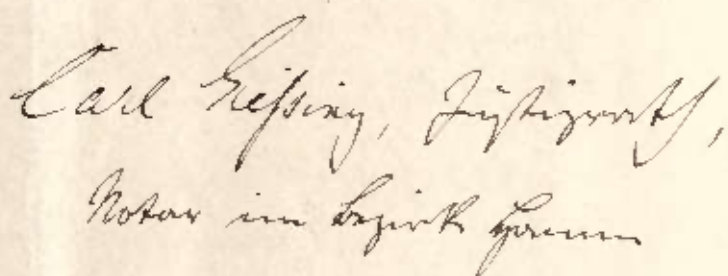 Carl Giessing, Justizrath,
Notar im Bezirk Hamm